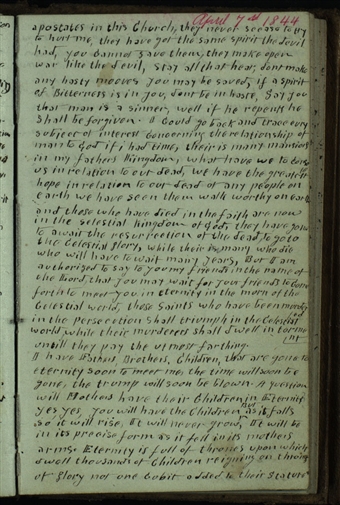 April 7th 1844
apostates in this Church, they never seeare to try
to hurt me, they have got the same spirit the devil
had, you cannot save them, they make open
war like the devil, stay all that hear, dont make
any hasty mooves You may be saved, if a spirit
of Bitterness is in you, dont be in haste, Say you
that man is a sinner, well if he repents he
Shall be forgiven. I Could go back and trace evry
subject of interest Concerning the relationship of
man to God if i had time, their is many mansions
in my fathers Kingdom, what have we to Console
us in relation to our dead, we have the greatest
hope in relation to our dead of any people on
earth we have seen them walk worthy on earth
and those who have died in the faith are now
in the Selestial Kingdom of God, they have gone
to await the resurrection of the dead, to go to
the Celestial glory, while their is many who die
who will have to wait many years, But I am
authorized to say to you my friends in the name of
the Lord, that you may wait for your friends to Come
forth to meet you in eternity in the morn of the
Celestial world, those Saints who have been murdered
in the persecution Shall triumph in the Celestial
world while their murderers shall dwell in torment
untill they pay the utmost farthing.
I have Fathers Brothers, Children, that are gone to
eternity soon to meet me, the time will soon be
gone, the trump will soon be blown. A question
will Mothers have their Children in Eternity
yes yes, you will have the Children But as it falls
so it will rise, It will never grow, It will be
in its precise form as it fell in its mothers
arms. Eternity is full of thrones upon which
dwell thousands of Children reigning on thrones
of glory not one Cubit added to their Stature